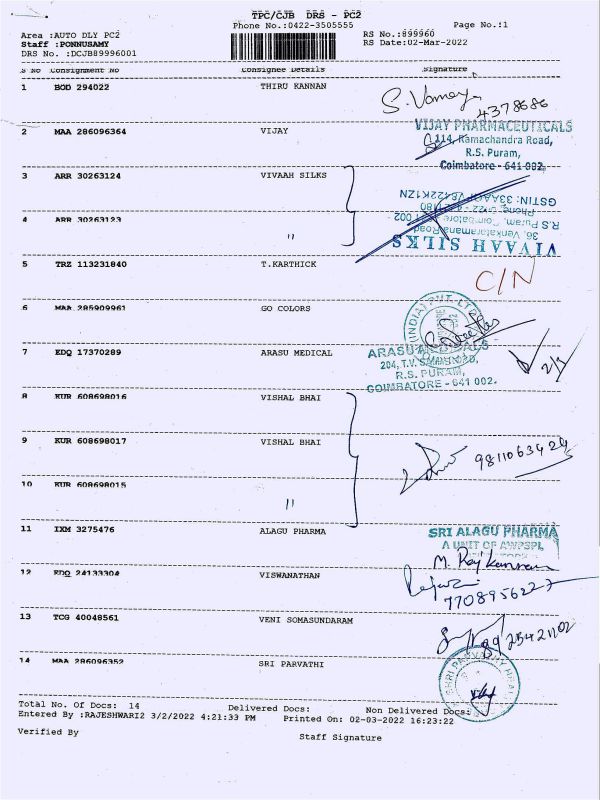 TPC/CJB DRS - PC2
Phone No.:0422-3505555
Page No.:1
Area :AUTO DLY PC2
RS No.:899960
Staff :PONNUSAMY
RS Date:02-Mar-2022
DRS No. :DCJB89996001
S No Consignment No Consignee Details Signature
1 BOD 294022 THIRU KANNAN
4378686
2 MAA 286096364 VIJAY
VIJAY PHARMACEUTICALS
114, Ramachandra Road,
R.S. Puram,
Coimbatore - 641 002.
3 ARR 30263124 VIVAAH SILKS
4 ARR 30263123 "
VIVAAH SILKS
36, Venkataramana Road,
R.S Puram, Coimbatore - 641 002
5 TRZ 113231840 T.KARTHICK
C/N
6 MAA 285909961 GO COLORS
(INDIA) PVT. LTD
7 EDQ 17370289 ARASU MEDICAL
ARASU MEDICALS
R.S. PURAM,
COIMBATORE - 641 002.
8 KUR 608698016 VISHAL BHAI
9 KUR 608698017 VISHAL BHAI
9811063424
10 KUR 608698015 "
11 IXM 3275476 ALAGU PHARMA
SRI ALAGU PHARMA
A UNIT OF AWPSPL
12 EDQ 24133304 VISWANATHAN
7708956227
13 TCG 40048561 VENI SOMASUNDARAM
14 MAA 286096352 SRI PARVATHI
Total No. Of Docs: 14 Delivered Docs: Non Delivered Docs:
Entered By :RAJESHWARI2 3/2/2022 4:21:33 PM Printed On: 02-03-2022 16:23:22
Verified By
Staff Signature